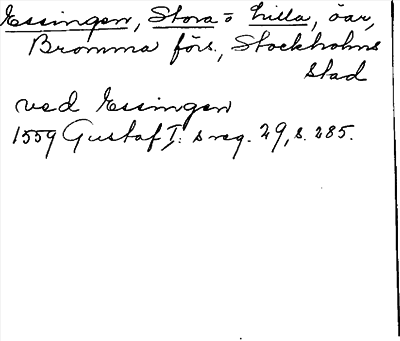 Essingen, Stora o Lilla, öar,
Bromma förs., Stockholms
stad
ved Essingen
1559 Gustaf I:s reg. 29, s. 285.